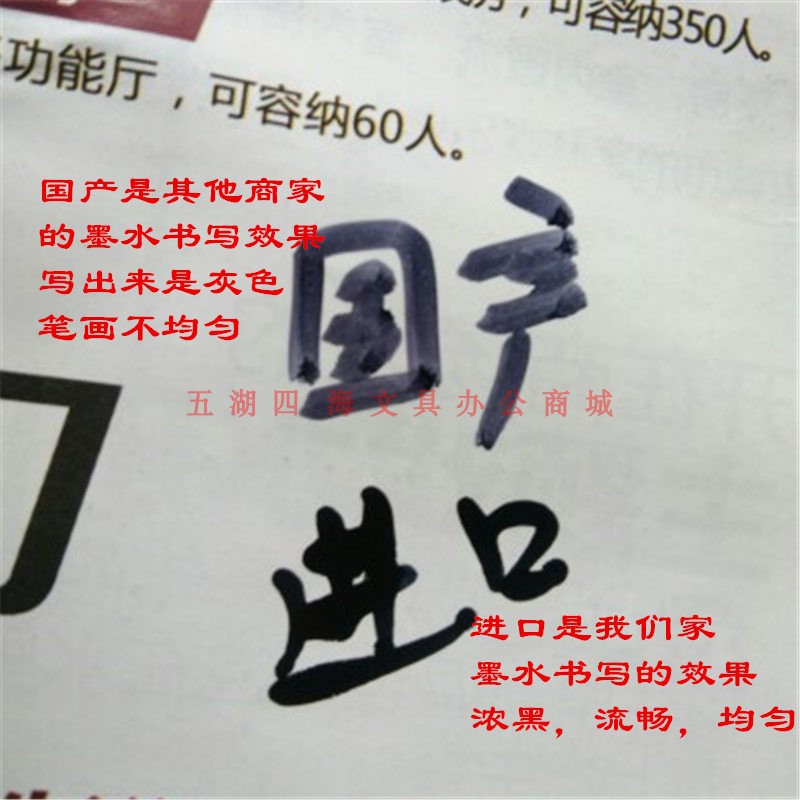 可容纳350人。
功能厅，可容纳60人。
国产是其他商家
的墨水书写效果
写出来是灰色
笔画不均匀
国产
五湖四海文具办公商城
进口
进口是我们家
墨水书写的效果
浓黑，流畅，均匀